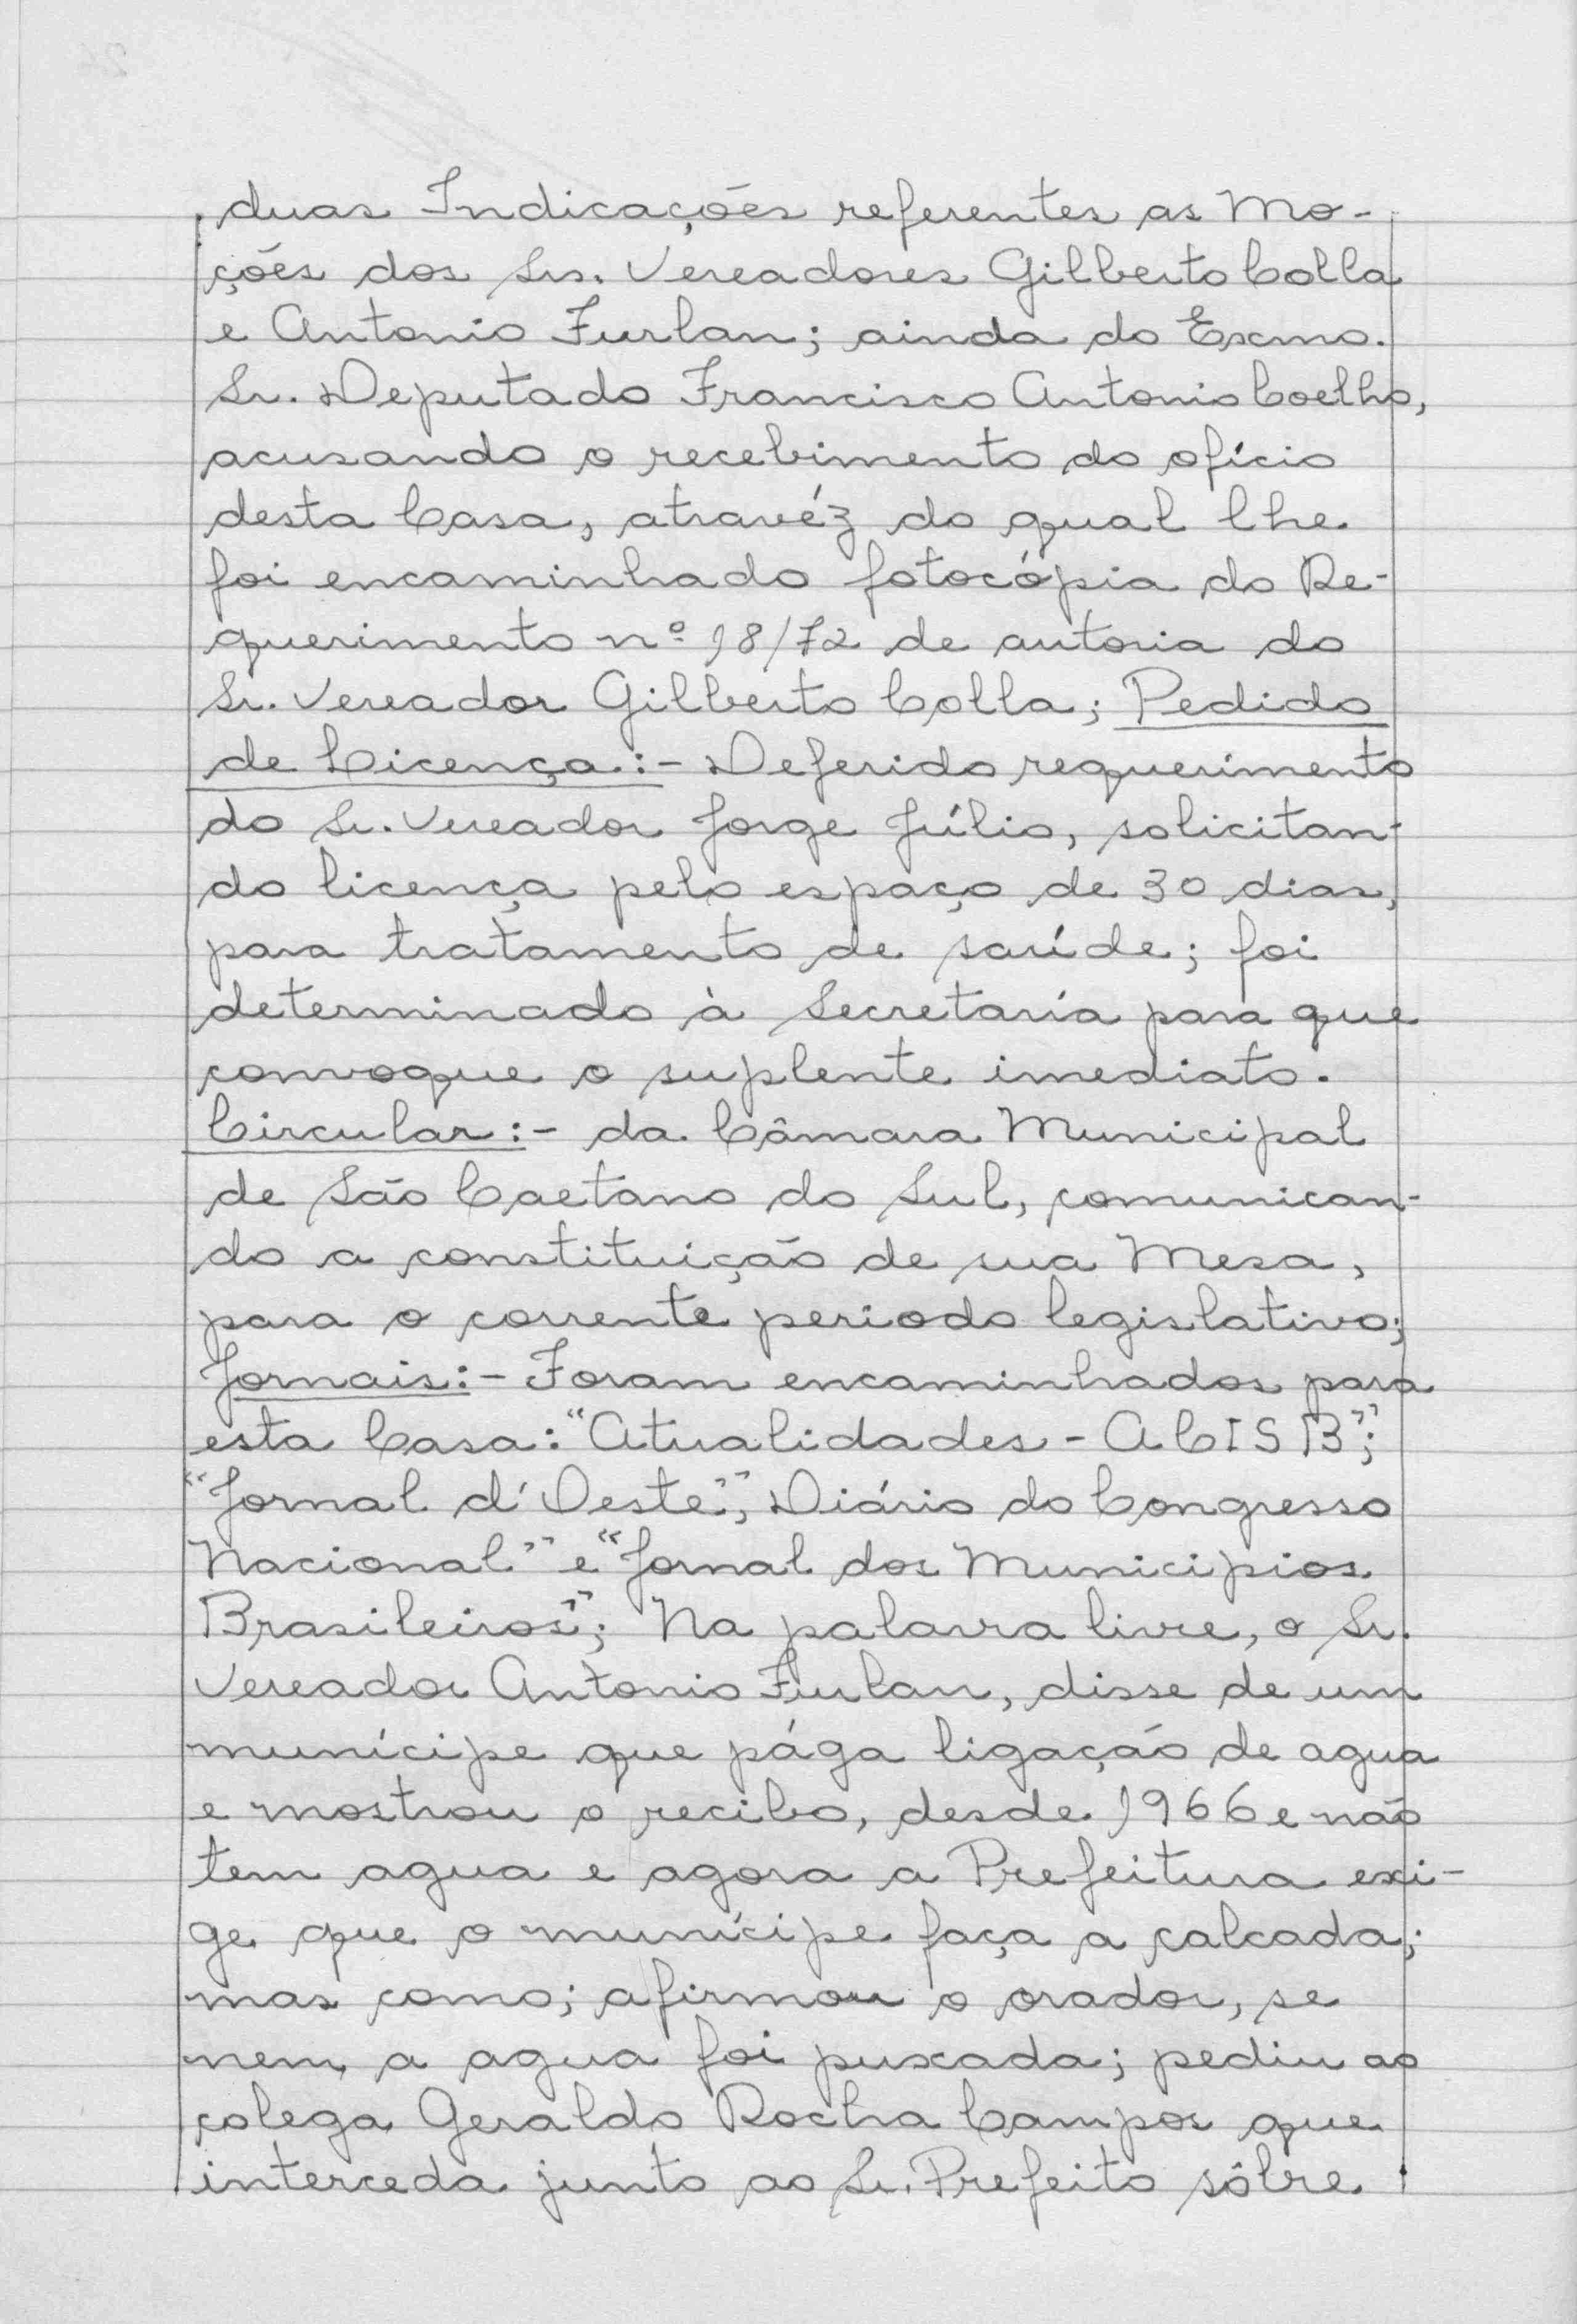 duas Indicações referentes as Mo-
ções dos Srs. Vereadores Gilberto Colla
e Antonio Furlan; ainda do Exmo.
Sr. Deputado Francisco Antonio Coelho,
acusando o recebimento do ofício
desta Casa, atravéz do qual lhe
foi encaminhado fotocópia do Re-
querimento nº 18/72 de autoria do
Sr. Vereador Gilberto Colla; Pedido
de Licença:- Deferido requerimento
do Sr. Vereador Jorge Júlio, solicitan-
do licença pelo espaço de 30 dias,
para tratamento de saúde; foi
determinado à Secretaría para que
convoque o suplente imediato.
Circular:- da Câmara Municipal
de São Caetano do Sul, comunican-
do a constituição de sua Mesa,
para o corrente periodo legislativo;
Jornais:- Foram encaminhados para
esta Casa: "Atualidades - ACISB";
"Jornal d'Oeste", Diário do Congresso
Nacional" e "Jornal dos Municipios
Brasileiros"; Na palavra livre, o Sr.
Vereador Antonio Furlan, disse de um
munícipe que pága ligação de agua
e mostrou o recibo, desde 1966 e não
tem agua e agora a Prefeitura exi-
ge que o munícipe faça a calcada;
mas como; afirmou o orador, se
nem a agua foi puxada; pediu ao
colega Geraldo Rocha Campos que
interceda junto ao Sr. Prefeito sôbre